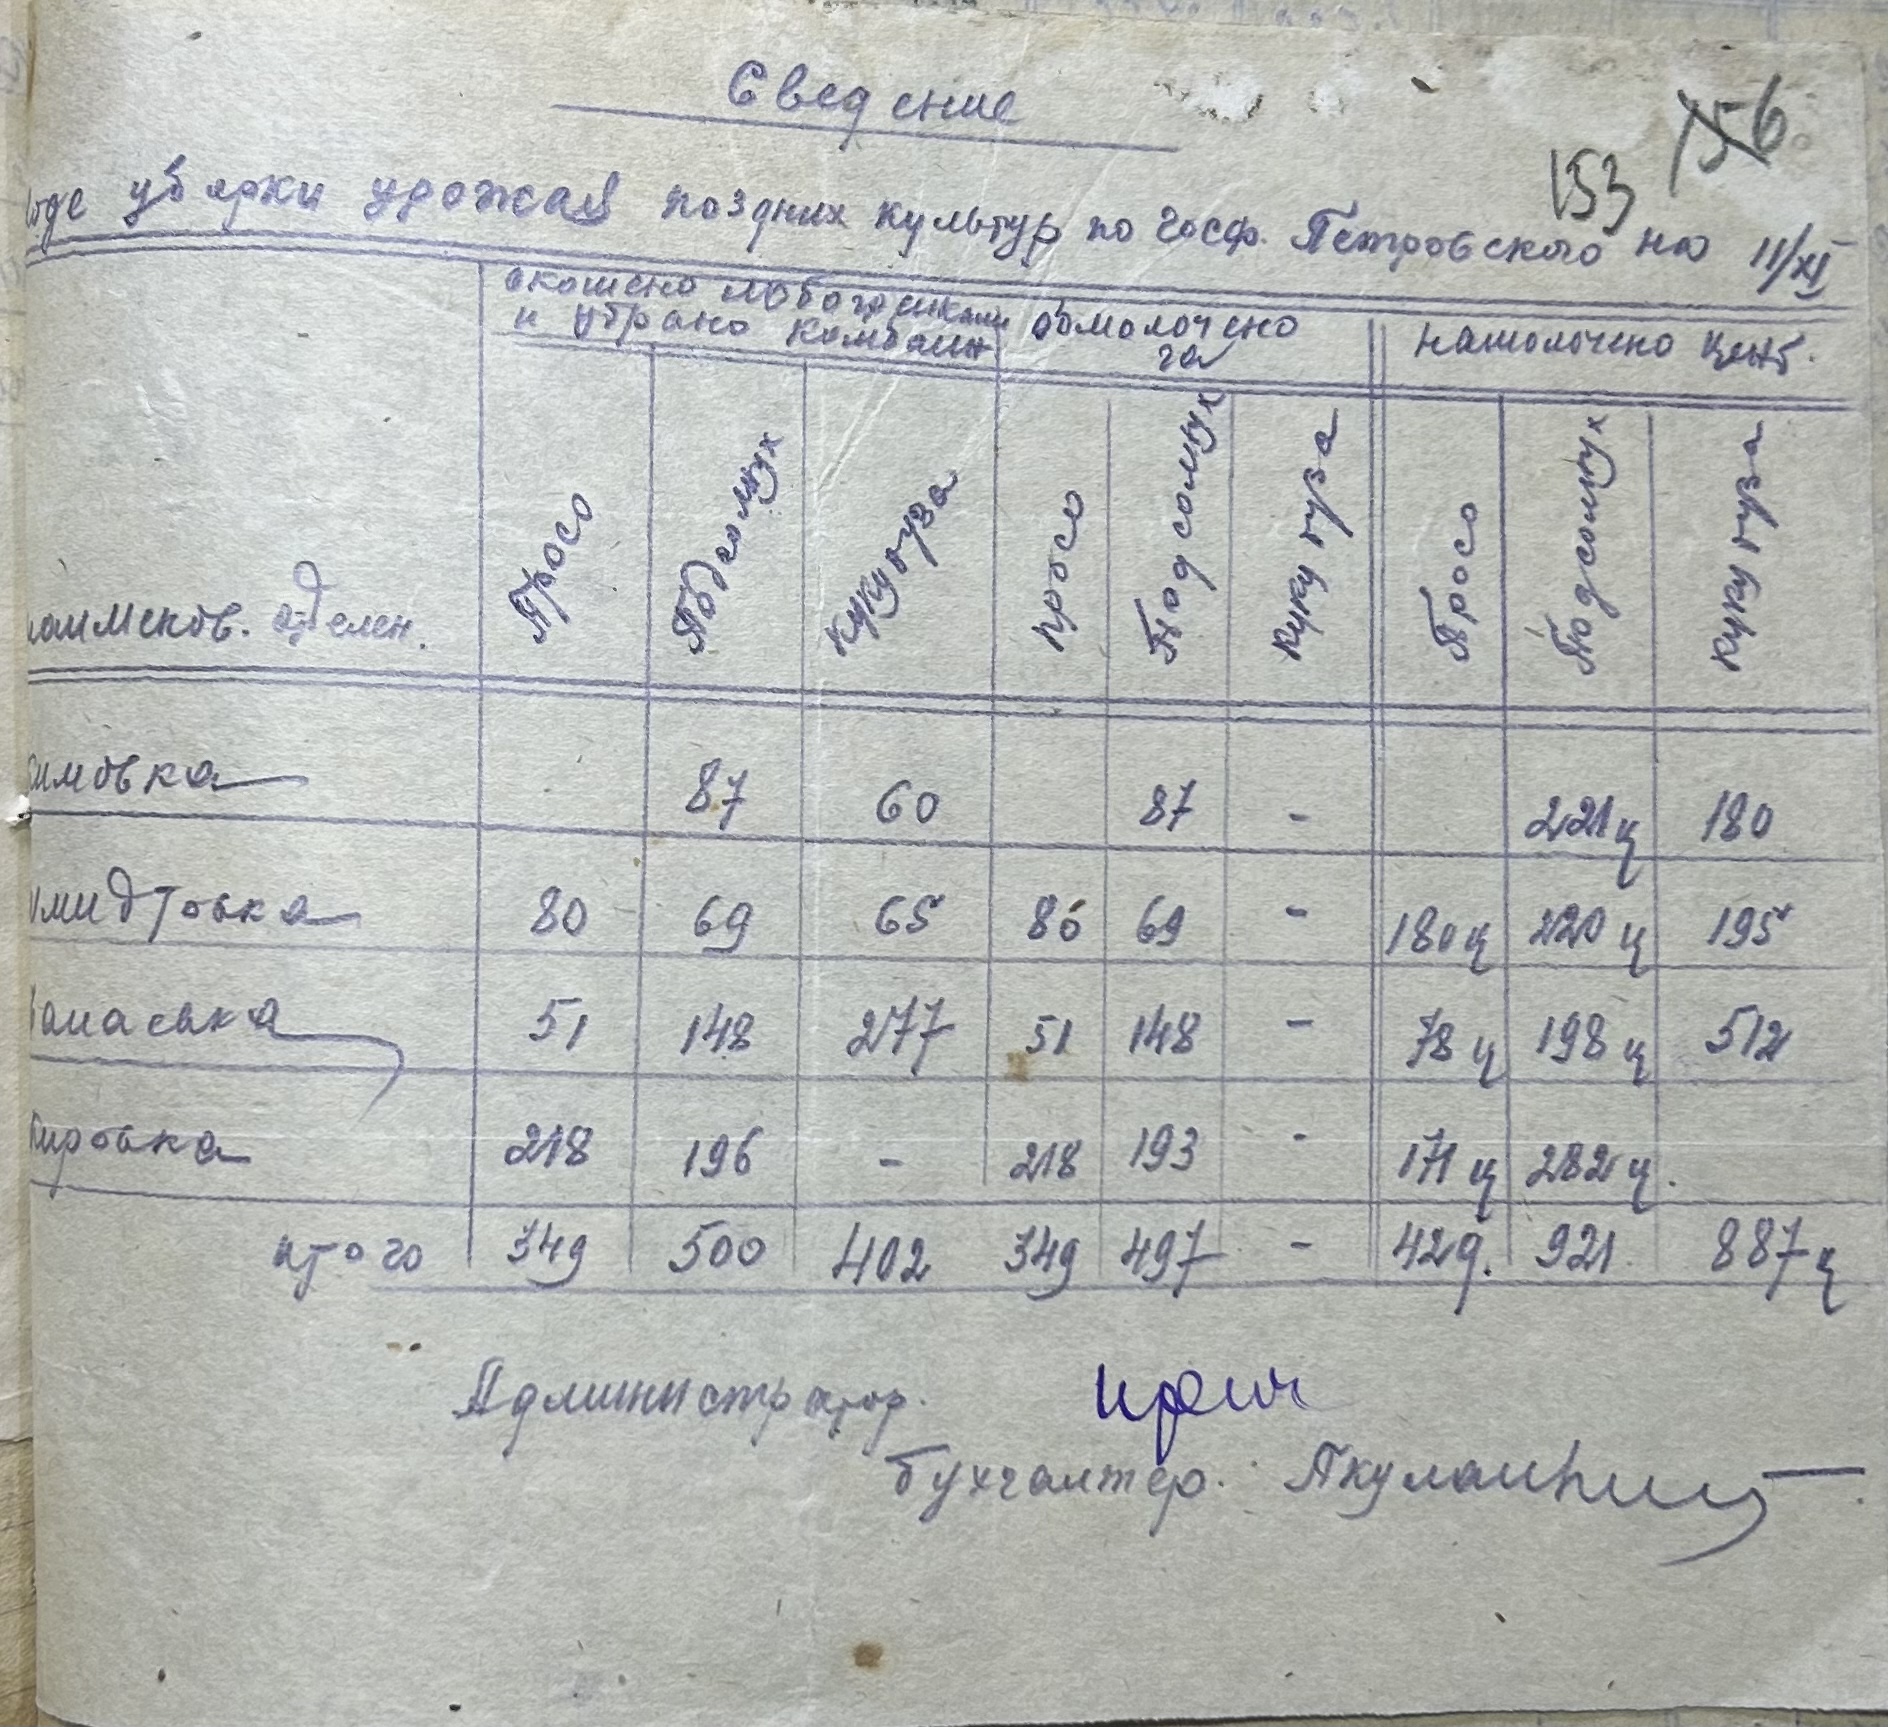 Сведение
156
153
ходе уборки урожая поздних культур по госф. Петровского на 11/XI
наименов. отделен.
скошено лобогрейками и убрано комбайн
обмолочено га
намолочено цент.
Просо Подсолнух Кукуруза просо Подсолнух Кукуруза Просо Подсолнух Кукуруза
имовка 87 60 87 - 221ц 180
мидтовка 80 69 65 80 69 - 180ц 220ц 195
51 148 277 51 148 - 78ц 198ц 512
кировка 218 196 - 218 193 - 171ц 282ц.
итого 349 500 402 349 497 - 429. 921. 887ц
Администратор.
Бухгалтер.